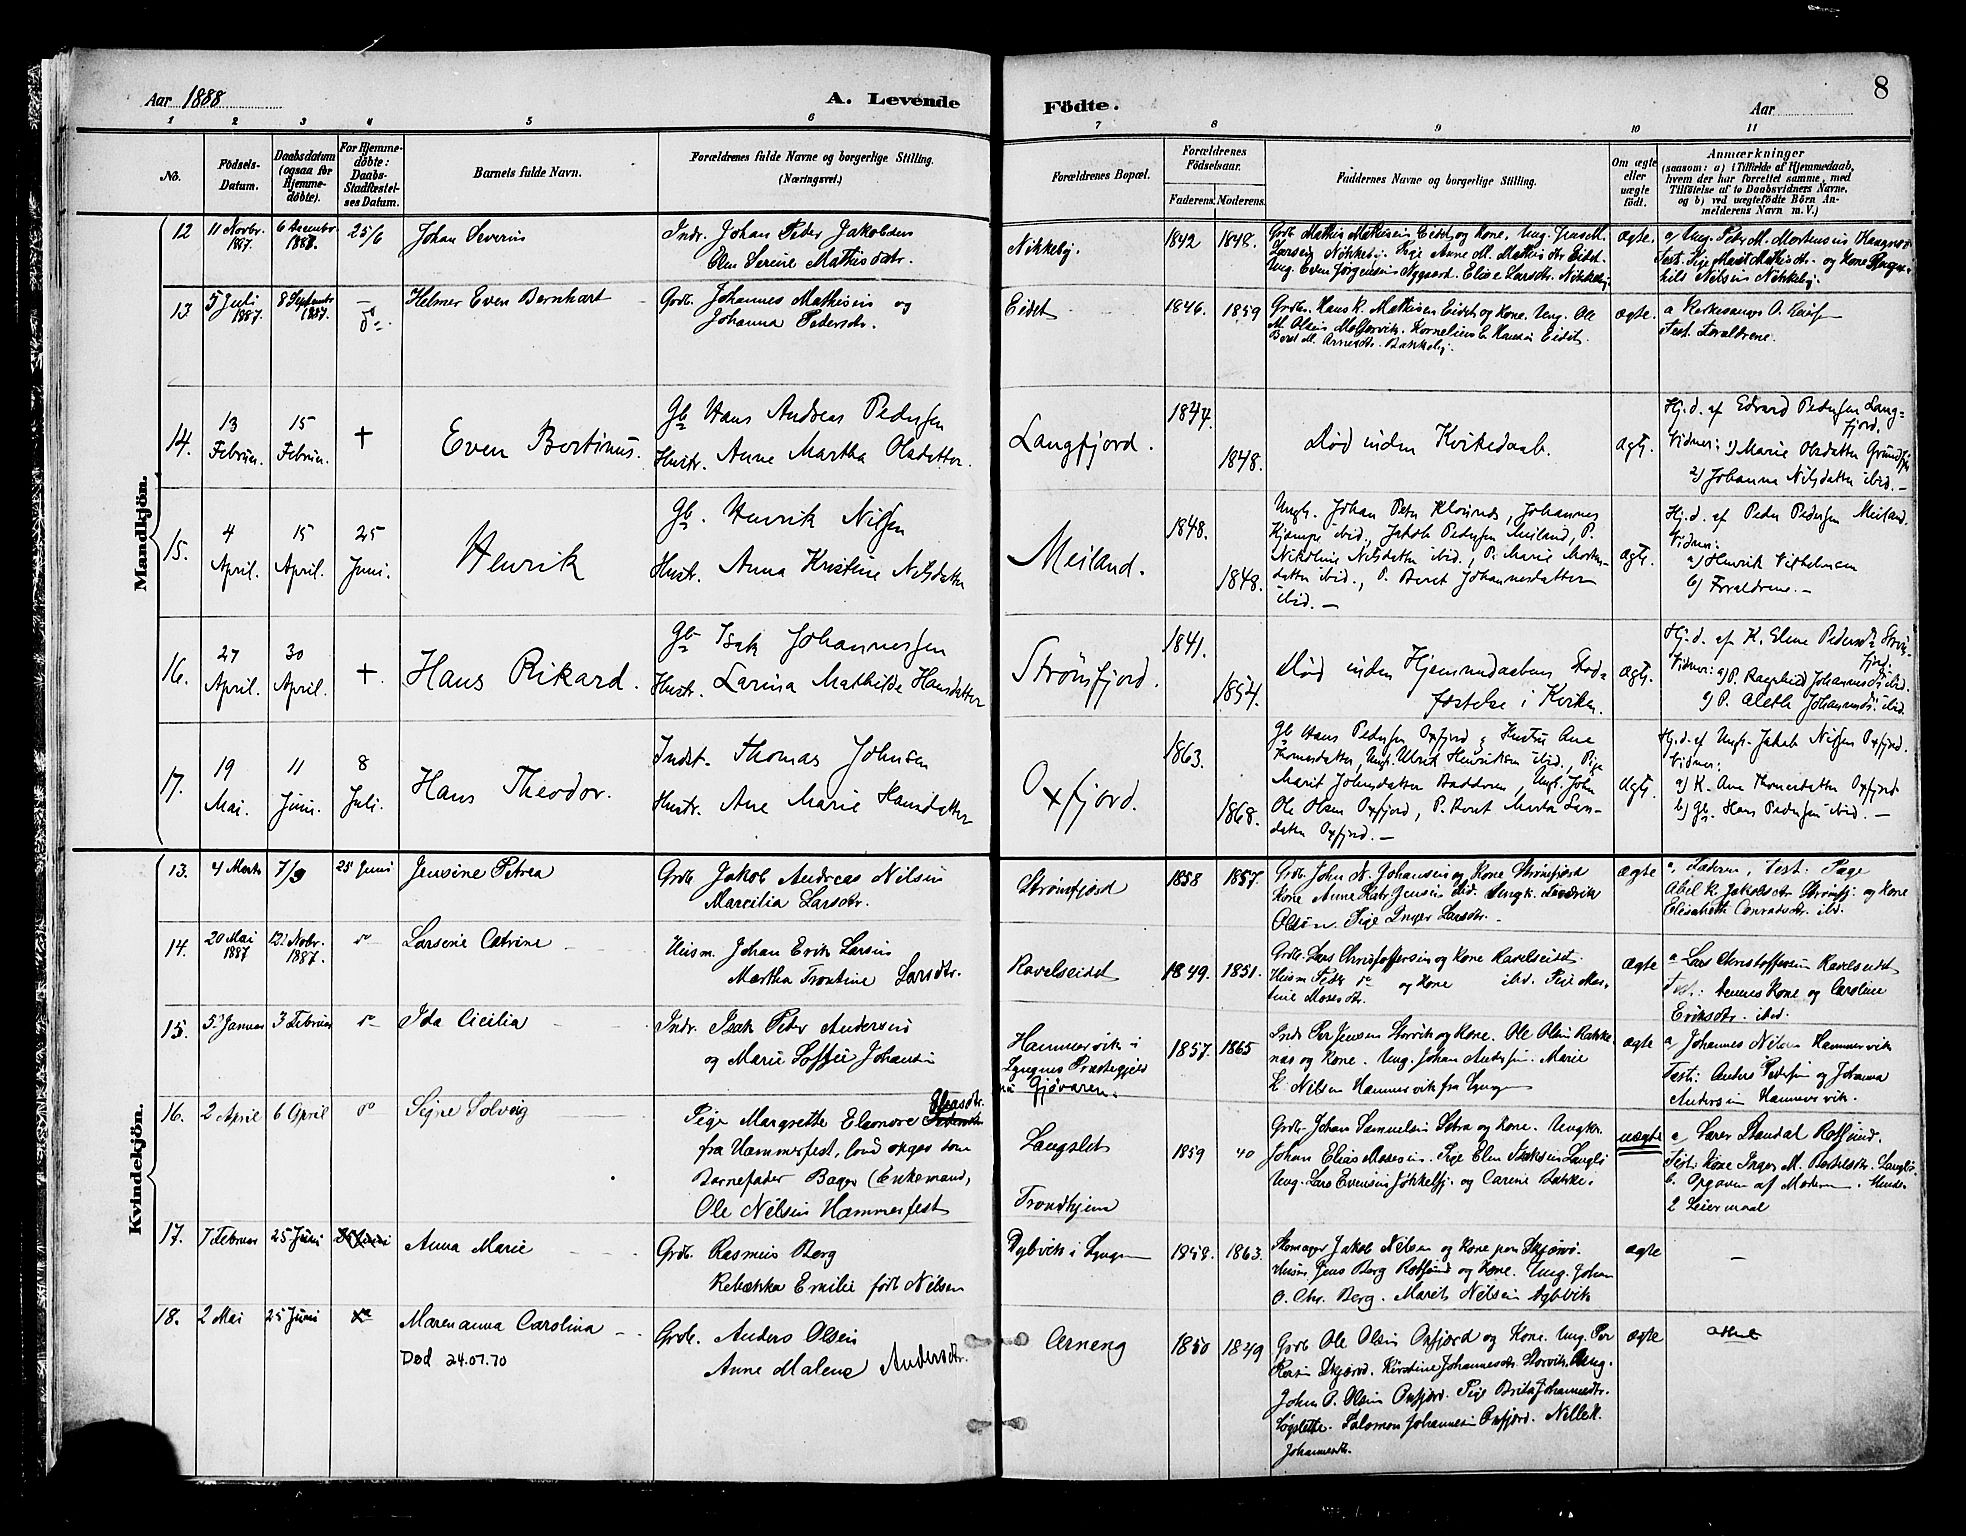 Aar 1888
A. Levende
Födte.
Aar
8
1 2 3 4 5 6 7 8 9 10 11
No.
Födsels-
Datum.
Daabsdatum
(ogsaa for
Hjemme-
döbte).
For Hjemme-
döbte:
Daabs-
Stadfæstel-
ses Datum.
Barnets fulde Navn.
Forældrenes fulde Navne og borgerlige Stilling.
(Næringsvei.)
Forældrenes Bopæl.
Forældrenes
Födselsaar.
Faderens. Moderens.
Faddernes Navne og borgerlige Stilling.
Om ægte
eller
uægte
födt.
Anmærkninger
(saasom: a) i Tilfælde af Hjemmedaab,
hvem der har forrettet samme, med
Tilföielse af to Daabsvidners Navne.
og b) ved uægtefödte Börn An-
melderens Navn m. V.)
Mandkjön.
12
11 Novbr. 1887.
6 Decembr 1887.
25/6
Johan Severin
Indr. Johan Peder Jakobsen
Elen Serine Mathisdatr.
Nikkeby.
1842
1848.
Larsen Nikkeby. Pige Anne M. Mathisdtr Eidet.
Ung. Even Jörgensen Nygaard. Elise Larsdtr. Nikkeby
ægte.
a) Ung. Peder M. Mortensen Haugnæs
Test. Pige Marit Mathisdtr. og Kone Ragn-
hild Nilsen Nikkeby.
13
5 Juli 1887.
8 Septembr 1887.
Helmer Even Bernhart
Grdb. Johannes Mathisen og
Johanna Pedersdr.
Eidet
1846.
1859
Grdbr. Hans K. Mathisen Eidet og Kone. Ung. Ole
M. Olsen Molfjorvik. Kornelius E. Hansen Eidet.
Beret M. Arnesdtr. Bakkeby.
ægte.
a Kirkesanger O.
Test. Forældrene.
14.
13 Februar.
15 Februar.
+
Even Bertinus.
Gb. Hans Andreas Pedersen
Hustr. Anne Martha Olsdatter.
Langfjord.
1844.
1848.
Død inden Kirkedaab.
ægt.
Hj.d. af Edvard Pedersen Lang-
fjord.
Vidner: 1) Marie Olsdatter Grundfj.
2) Johanna Nilsdatter ibid. –
15.
4 April.
15 April.
25 Juni.
Henrik
Gb. Henrik Nilsen
Hustr. Anna Kristine Nilsdatter
Meiland.
1848.
1848.
Ungk. Johan Peter Klovnes, Johannes
Kjempe ibid., Jakob Pedersen Meiland, P.
Nikoline Nilsdatter ibid., P. Marie Morten-
datter ibid., P. Beret Johannesdatter
ibid. –
ægt.
Hj.d. af Peder Pedersen Meiland.
Vidner:
a) Henrik Vilhelmsen
b) Forældrene. –
16.
27 April.
30 April.
+.
Hans Rikard.
Gb. Isak Johannesen
Hustr. Larina Mathilde Hansdatter
Strömfjord.
1841.
1854.
Død inden Hjemmedaabens Stad-
fæstelse i Kirken.
ægt.
Hj.d. af K. Elene Pedersd. Ström-
fjord.
Vidner: a) P. Ragnhild Johannesdr ibid.
b) P. Aleth Johannesdr. ibid.
17.
19 Mai.
11 Juni.
8 Juli.
Hans Theodor.
Indst. Thomas Johnsen
Hustr. Ane Marie Hansdatter
Oxfjord.
1863.
1868.
Gb Hans Pedersen Oxfjord, Hustru Ane
Thomesdatter, Ungk. Ulrik Henriksen ibid., Pige
Marit Johnsdatter Badderen, Ungk. John
Ole Olsen Oxfjord, P. Beret Marta Lars-
datter Oxfjord. –
ægt.
Hj.d. af Ungk. Jakob Nilsen Oxfjord.
Vidner:
a) K. Ane Thomesdatter Oxfjord
b) Gb. Hans Pedersen ibid. –
Kvindekjön.
13.
4 Marts
7/3
25 Juni
Jensine Petrea
Grdb. Jakob Andreas Nilsen
Marcilia Larsdtr.
Strömfjord
1858
1857.
Grdb. John N. Johansen og Kone Strömfjord
Kone Anne Katr. Jensen ibid. Ungk. Fredrik
Olsen. Pige Inger Larsdtr.
ægte
a. Faderen, Test. Page
Abel K. Jakobsdtr Strömfj. og Kone
Elisabeth Conradsdtr. ibid.
14.
20 Mai 1887
12 Nobr. 1887.
do
Larsene Catrine
Husm. Johan Erik Larsen
Martha Trontine Larsdtr.
Ravelseidet
1849.
1851.
Grdb. Lars Christoffersen og Kone Ravelseidet.
Husm Peder do og Kone ibid. Pige Mar-
tine Mosesdtr.
ægte
a Lars Christoffersen Ravelseidet
Test.: Dennes Kone og Caroline
Eriksdtr. ibid.
15.
5 Januar
3 Februar
do
Ida Cicilia
Indr. Isak Peder Andersen
og Marie Soffie Johansen
Hammervik i
Lyngens Præstegjeld
nu Gjövaren.
1857.
1865
Indr Per Jensen Storvik og Kone. Ole Olsen Bakke-
næs og Kone. Ung. Johan Andersen. Marie
K. Nilsen Hammervik fra Lyngen
ægte
a, Johannes Nilsen Hammervik
Test: Anders Pedersen og Johanna
Andersen Hammervik.
16.
2 April
6 April
do
Signe Solveig
Elensdtr.
Pige Margrethe Eleonore
fra Hammerfest, som opgav som
Barnefader Bager (Enkemand,
Ole Nilsen Hammerfest
Langslet
Trondhjem
1859
40
Grdb. Johan Samuelsen Sætra og Kone. Ungkr.
Johan Elias Mosesen. Pige Elen Isaksen Langli
Ung. Lars Evensen Jökkelfj. og Carine Bakke.
uægte
a, Lærer Standal Rotsund.
Test: Kone Inger M. Bertelsdtr. Langli
b. Opgaven af Moderen.
2 Leiermaal
17.
7 Februar
25 Juni
25 Juni
Anna Marie
Grdb. Rasmus Berg
Rebækka Emilie födt Nilsen
Dybvik i Lyngen
1858.
1863.
Skomager Jakob Nilsen og Kone paa Skjærvö.
Husm Jens Berg Rotsund og Kone. Ung. Johan
O. Chr. Berg. Marith Nilsen Dybvik
ægte
–
18.
2 Mai
25 Juni
Marenanna Carolina
Død 24.07.70
Grdb. Anders Olsen
Anne Malene Andersdtr.
Arneng
1850
1849
Grdb Ole Olsen Oxfjord og Kone. Ung. Per
Skjærvö. Kirstine Johannesdtr Storvik. Ung.
Johan P. Olsen Oxfjord. Pige Brita Johannesdtr.
Lögslette. Salomon Johannesen Oxfjord. Nille K.
Johannesdtr.
ægte